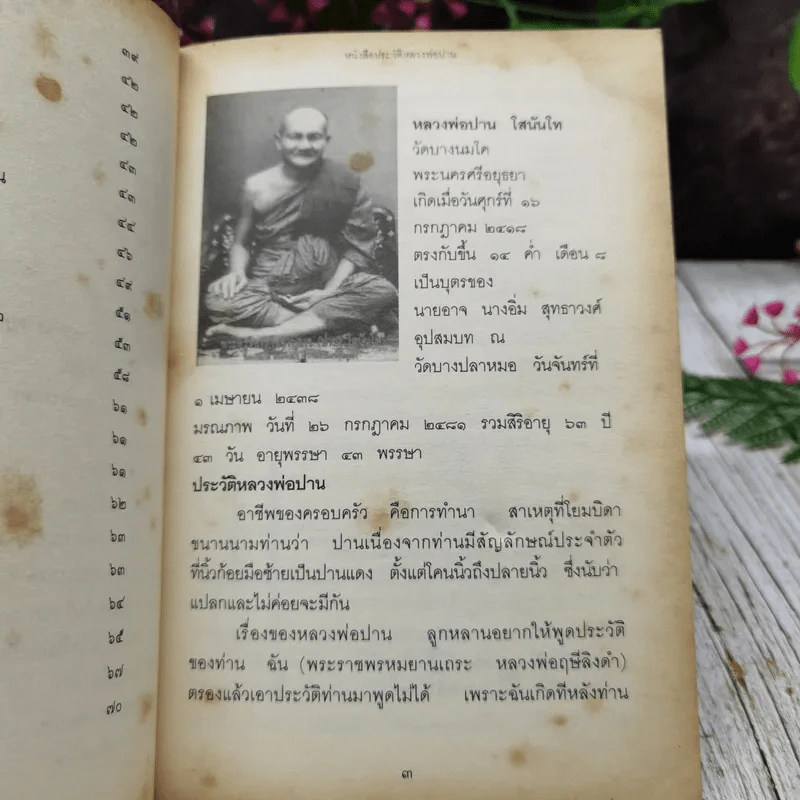 ๓๙
๔๒
๔๒
๔๒
๔๓
น
๔๓
๔๔
๔๖
๔๙
๕๑
๕๓
๕๘
๖๑
๖๑
๖๑
๖๒
๖๓
๖๓
๖๔
๖๕
๖๗
๗๐
หนังสือประวัติหลวงพ่อปาน
หลวงพ่อปาน โสนันโท
วัดบางนมโค
พระนครศรีอยุธยา
เกิดเมื่อวันศุกร์ที่ ๑๖
กรกฎาคม ๒๔๑๘
ตรงกับขึ้น ๑๔ ค่ำ เดือน ๘
เป็นบุตรของ
นายอาจ นางอิ่ม สุทธาวงศ์
อุปสมบท ณ
วัดบางปลาหมอ วันจันทร์ที่
๑ เมษายน ๒๔๓๘
มรณภาพ วันที่ ๒๖ กรกฎาคม ๒๔๘๑ รวมสิริอายุ ๖๓ ปี
๔๓ วัน อายุพรรษา ๔๓ พรรษา
ประวัติหลวงพ่อปาน
อาชีพของครอบครัว คือการทำนา สาเหตุที่โยมบิดา
ขนานนามท่านว่า ปานเนื่องจากท่านมีสัญลักษณ์ประจำตัว
ที่นิ้วก้อยมือซ้ายเป็นปานแดง ตั้งแต่โคนนิ้วถึงปลายนิ้ว ซึ่งนับว่า
แปลกและไม่ค่อยจะมีกัน
เรื่องของหลวงพ่อปาน ลูกหลานอยากให้พูดประวัติ
ของท่าน ฉัน (พระราชพรหมยานเถระ หลวงพ่อฤษีลิงดำ)
ตรองแล้วเอาประวัติท่านมาพูดไม่ได้ เพราะฉันเกิดทีหลังท่าน
๓